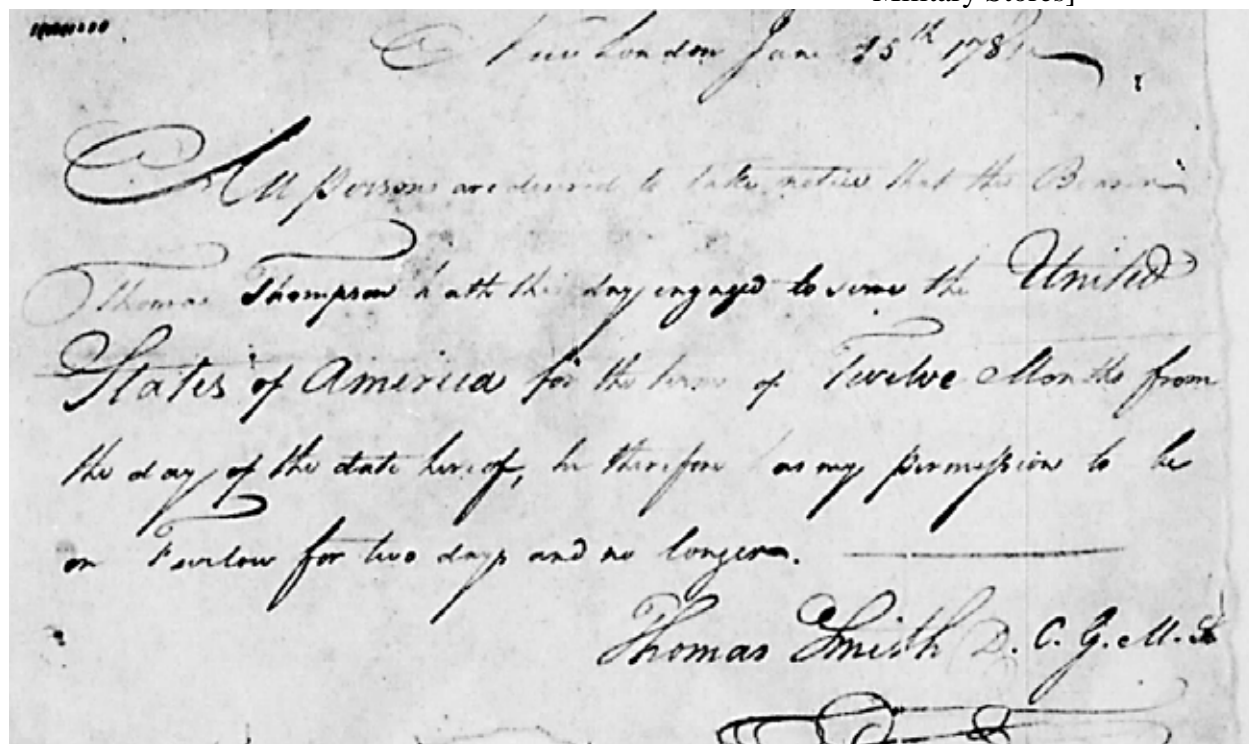 Military Stores]
New London 1781
All persons are desired to take notice that the Bearer
Thomas Thompson hath this day engaged to serve the United
States of America for the term of Twelve Months from
the day of the date hereof, he therefore has my permission to be
on Furlow for two days and no longer.
Thomas Smith D. C. G. M. S